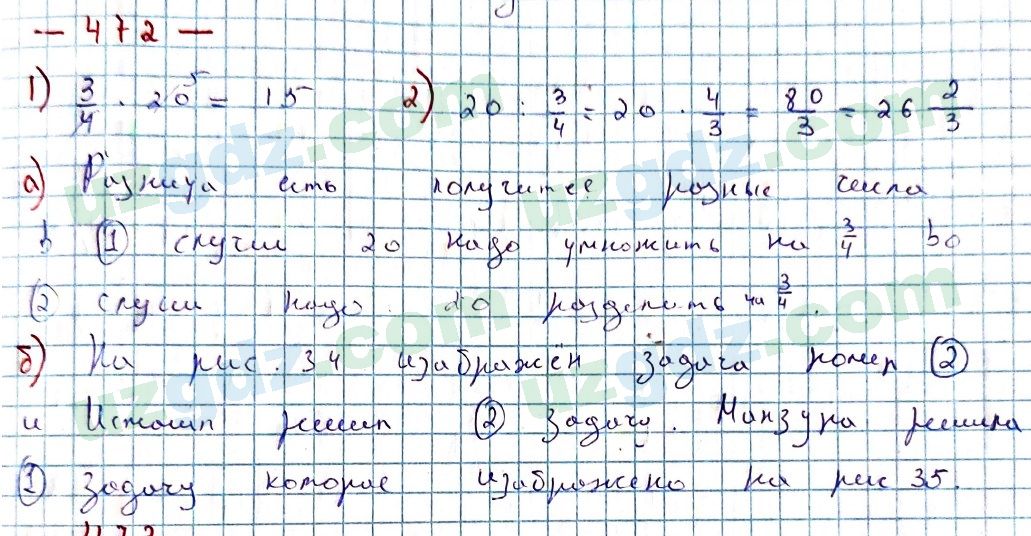 — 472 —
1) 3/4 · 20 5 = 15 2) 20 : 3/4 = 20 · 4/3 = 80/3 = 26 2/3
а) Разница есть получитсе розные числа
в ① случии 20 надо умножить на 3/4 во
② случии надо 20 розделить на 3/4.
б) На рис. 34 изабражён задача номер ②
и Истоил решил ② задачу. Манзура решила
① задачу которое изабражено на рис 35.